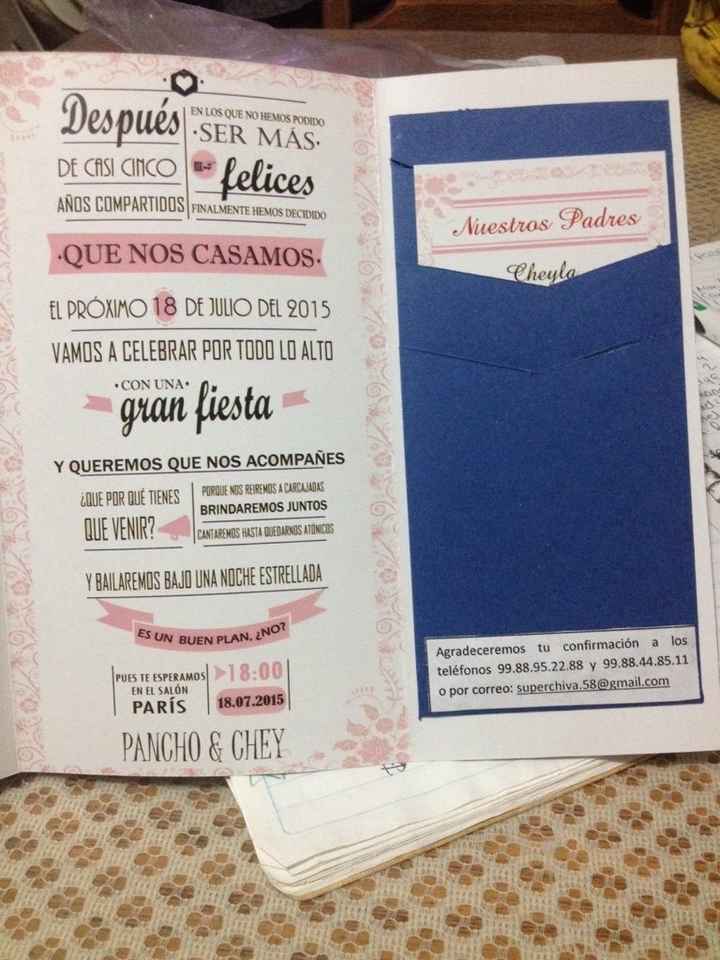 Después
DE CASI CINCO
AÑOS COMPARTIDOS
EN LOS QUE NO HEMOS PODIDO
·SER MÁS·
felices
FINALMENTE HEMOS DECIDIDO
·QUE NOS CASAMOS·
EL PRÓXIMO 18 DE JULIO DEL 2015
VAMOS A CELEBRAR POR TODO LO ALTO
·CON UNA·
gran fiesta
Y QUEREMOS QUE NOS ACOMPAÑES
¿QUE POR QUÉ TIENES
QUE VENIR?
PORQUE NOS REIREMOS A CARCAJADAS
BRINDAREMOS JUNTOS
CANTAREMOS HASTA QUEDARNOS ATÓNICOS
Y BAILAREMOS BAJO UNA NOCHE ESTRELLADA
ES UN BUEN PLAN, ¿NO?
PUES TE ESPERAMOS
EN EL SALÓN
PARÍS
18:00
18.07.2015
PANCHO & CHEY
Nuestros Padres
Cheyla
Agradeceremos tu confirmación a los
teléfonos 99.88.95.22.88 y 99.88.44.85.11
o por correo: superchiva.58@gmail.com